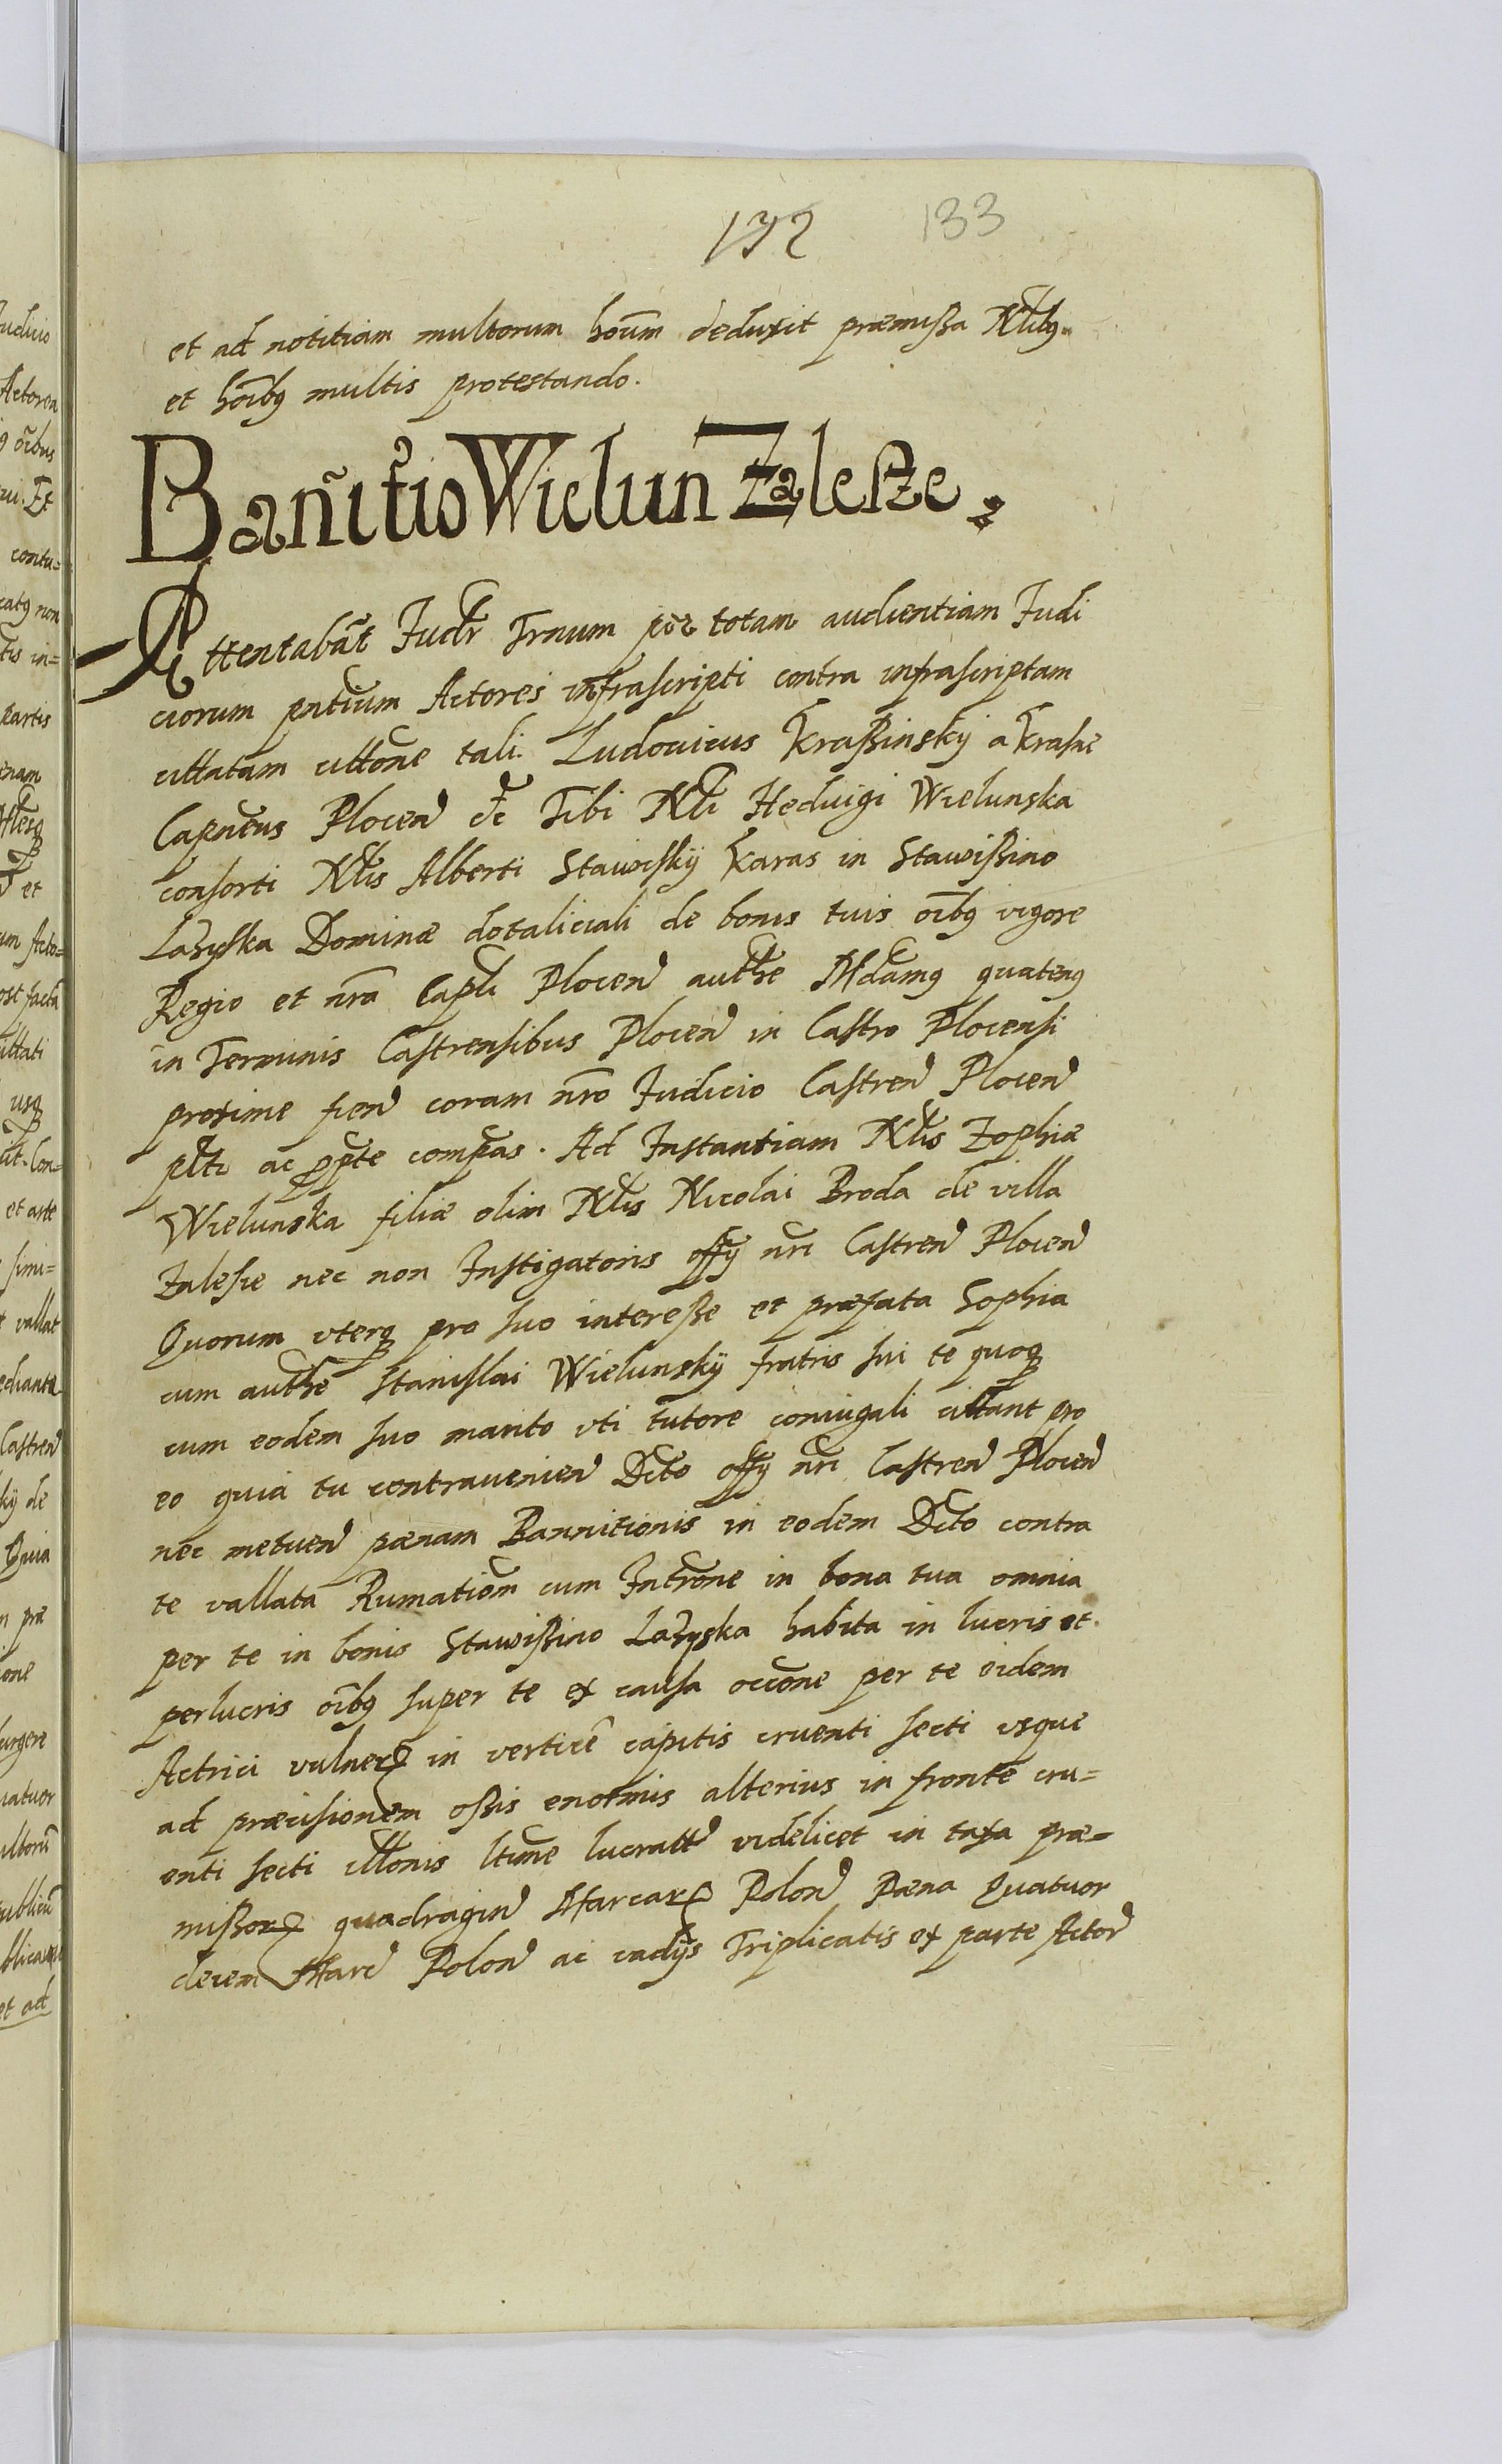 132 133
et ad notitiam multorum hoūm deduxit præmißa Nlibꝫ
et hoībꝫ multis protestando.
Bañitio Wielun Zaleſze.
Attentabāt Judr Trnum per totam audientiam Judi
ciorum pntium Actores infraſcripti contra infraſcriptam
cittatam cittone tali. Ludouicus Kraßinskÿ a Kraſne
Capneus Plocen ꝛc Tibi Nli Heduigi Wielunska
conſorti Nlis Alberti Stawiſkÿ Karas in Stawißino
Lazyſka Dominæ dotaliciali de bonis tuis oībꝫ vigore
Regio et nrā Capli Plocen authe Mdamꝫ quatenꝫ
in Terminis Caſtrenſibus Plocen in Caſtro Plocenſi
proxime fien coram nro Judicio Caſtren Plocen
plr ac ꝑpte compas. Ad Inſtantiam Nlis Zophiæ
Wielunska filiæ olim Nlis Nicolai Broda de villa
Zaleſie nec non Inſtigatoris offÿ nri Caſtren Plocen
Quorum vterqꝫ pro ſuo intereße et præfata Sophia
cum authe Staniſlai Wielunskÿ fratris ſui te quoqꝫ
cum eodem ſuo marito vti tutore coniugali cittant pro
eo quia tu contrauenien Dcto offÿ nri Caſtren Plocen
nec metuen pœnam Bannitionis in eodem Dcto contra
te vallata Rumatiom cum Introne in bona tua omnia
per te in bonis Stawißino Lazyska habita in lucris et
perlucris oībꝫ ſuper te ex cauſa occone per te eidem
Actrici vulnerꝝ in verticē capitis cruenti ſecti vsque
ad præciſionem oßis enormis alterius in fronte cru=
enti ſecti illtonis ltime lucratt videlicet in taxa præ=
mißorꝝ quadragin Marcarꝝ Polon Pœna Quatuor
decem Marc Polon ac vadÿs Triplicatis ex parte Actor